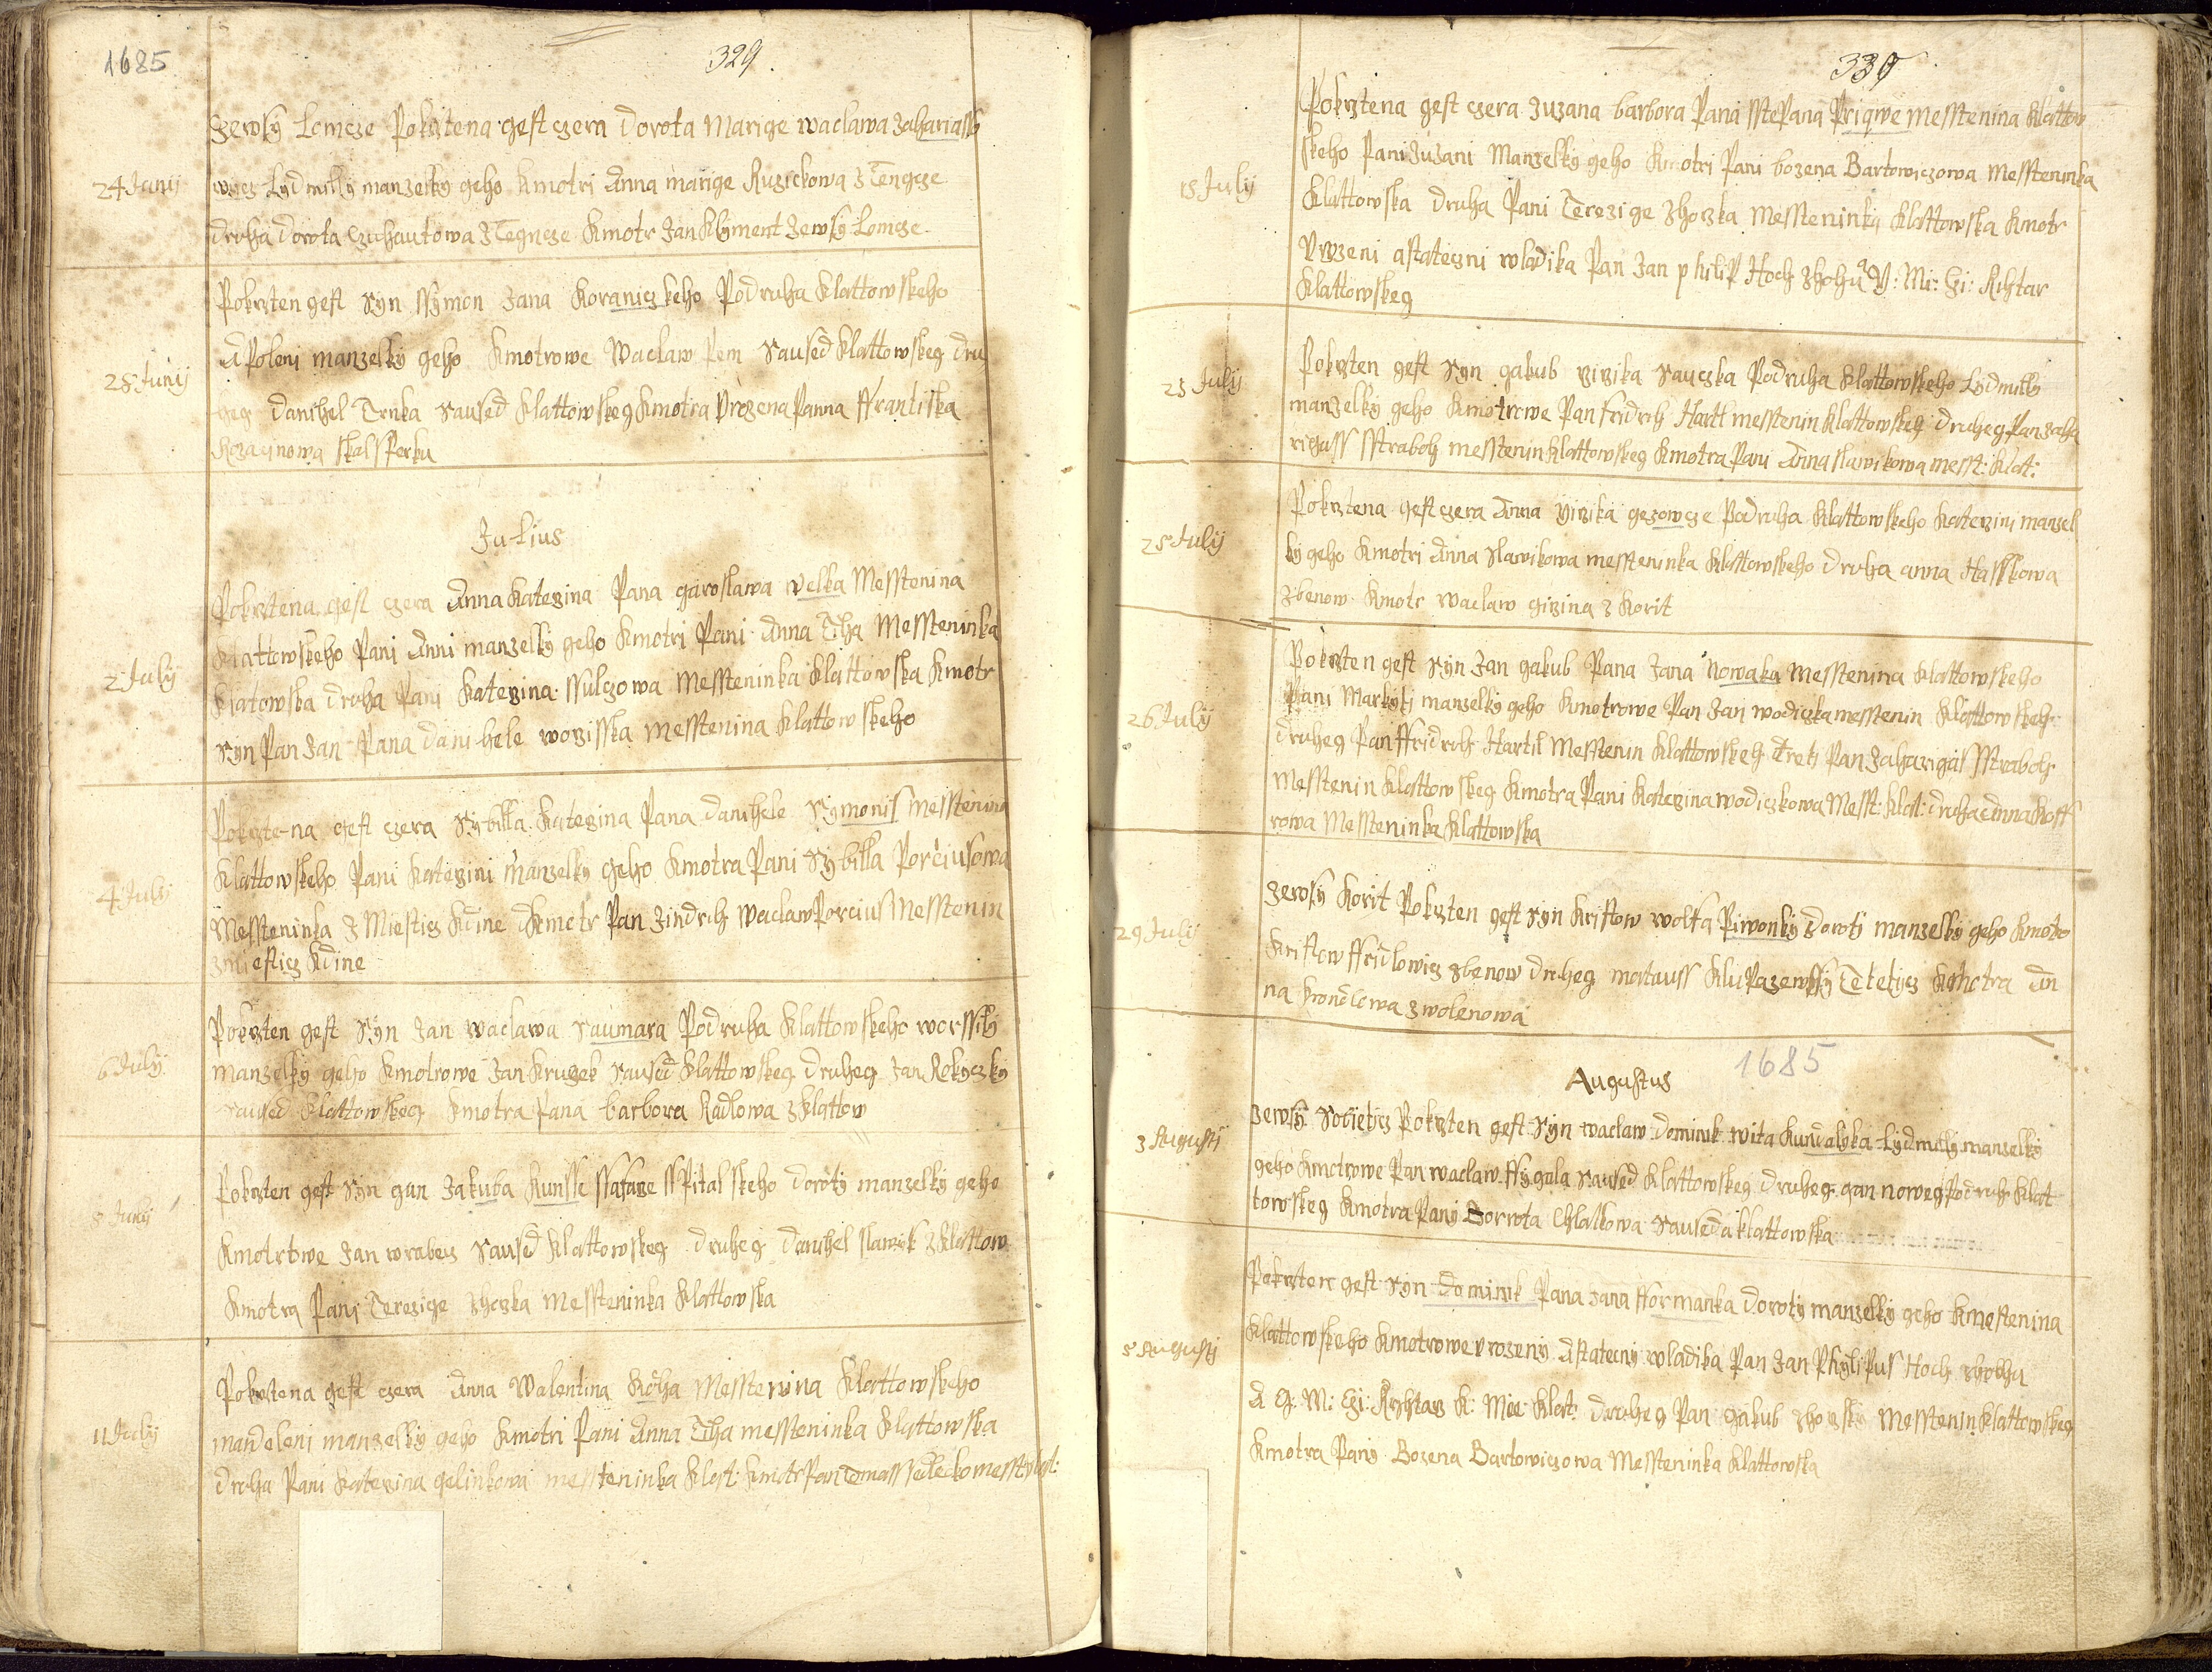 1685
329.
Zewsy Lomcze Pokrztena gest czera Dorota Marige waclawa Zahariassy
24 Junij
wycz Lydmilly manzelky geho Kmotri Anna marige Ruzickowa z Tengcze
druha dorota Czuhautowa z Tegncze Kmotr Jan Klyment Zewsy Lomcze
Pokrzten gest syn ssymon Jana Koraniczkeho Podruha Klattowskeho
28 Junij
Apoleni manzelky geho Kmotrowe Waclaw Pem Saused Klattowskeg dru
heg danihel Trnka Saused Klattowskeg Kmotra Vrozena Panna ffrantisska
skalssperku
Julius
Pokrztena gest czera Anna Katerzina Pana garoslawa welka Messtenina
Klattowskeho Pani Anni manzelky geho Kmotri Pani Anna Tiha Messteninka
2 July
Klatowska druha Pani Katerzina ssulczowa Messteninka Klattowska Kmotr
syn Pan Jan Pana danihele worzisska Messtenina Klattowskeho
Pokrzte-na gest czera Sybilla Katerzina Pana danihele Symonis messtenina
4 July
Klattowskeho Pani Katerzini manzelky geho Kmotra Pani Sybilla Porciusowa
Messteninka z Miesticz Kdine Kmotr Pan Jindrch Waclaw Porcius Messtenin
z miesticz Kdine
Pokrzten gest syn Jan waclawa Saumara Podruha Klattowskeho worssily
6 July
manzelky geho Kmotrowe Jan Kruzek Saused Klattowskeg druheg Jan Rokyczky
saused Klattowskeg Kmotra Pana barbora Kadlowa z Klattow
Pokrzten gest syn gan Jakuba Kunsse ssafarze sspitalskeho doroty manzelky geho
8 July
Kmotrowe Jan wrabecz Saused Klattowskeg druheg danihel slawik z Klattow
Kmotra Pani Terezige Zhorzka Messteninka Klattowska
Pokrztena gest czera Anna Walentina Koha Messtenina Klattowskeho
11 July
mandeleni manzelky geho Kmotri Pani Anna Tiha messteninka Klattowska
druha Pani Katerzina gelinkowa messteninka Klat: Kmotr Pan Tomass messt: klat:
330
Pokrztena gest czera Zuzana barbora Pana sstepana Priqwe messtenina Klattow
skeho Pani Zuzani Manzelky geho Kmotri Pani bozena Bartowiczowa Messteninka
15 July
Klattowska druha Pani Terezige Zhorzka messteninky Klattowska Kmotr
Vrozeni astateczni wladika Pan Jan philip Hoch Mi: Ci: Rihtar
Klattowskeg
Pokrzten gest syn gakub girzika Sauczka Podruha Klattowskeho Lydmilly
23 July
manzelky geho Kmotrowe Pan fridrich Hartl messtenin Klattowskeg druheg Pan zaha
rigass sstraboh messtenin Klattowskeg Kmotra Pani Anna slawikowa messt: Klat:
Pokrztena gest czera Anna girzika gezowcze Podruha Klattowskeho Katerzini manzel
25 July
ky geho Kmotri Anna slawikowa messteninka Klattowskeho druha anna Hasskowa
zbenow Kmotr waclaw girzina z Korit
Pokrzten gest syn Jan gakub Pana Jana Nowaka messtenina Klattowskeho
Pani Markyty manzelky geho Kmotrowe Pan Jan wodiczka messtenin Klattowskeh
26 July
druheg Pan ffridrch Hartl Messtenin Klattowskeg Treti Pan Zaharigas sstraboh
messtenin Klattowskeg Kmotra Pani Katerzina wodiczkowa Messt: Klat: druha Anna Koff
rowa Messteninka Klattowska
Zewsy Korit Pokrzten gest syn Kristow wolfa Piwonky doroti manzelky geho Kmotro
29 July
Kristow ffridlowicz zbenow druheg matauss Klupa zewsy Tetetycz Kmotra An
na Krondlowa z wolenowa
1685
Augustus
zewsy Sobieticz Pokrzten gest syn waclaw dominik wita Kundalyka Lydmilly manzelky
3 Augusti
geho Kmotrowe Pan waclaw ffygala Saused Klattowskeg druheg gan noweg Podruh Klat
towskeg Kmotra Pani Dorota Chlalkowa Sauseda Klattowska
Pokrzten gest syn dominik Pana Jana fformanka doroty manzelky geho Kmestenina
5 Augusti
Klattowskeho Kmotrowe vrozeny Astatecny wladika Pan Jan Phylipus Hoch
M: Ci: Ryhtarz K: Mie Klat: druheg Pan gakub zhorzsky Messtenin Klattowskeg
Kmotra Pani Bozena Bartowiczowa Messteninka Klattowska